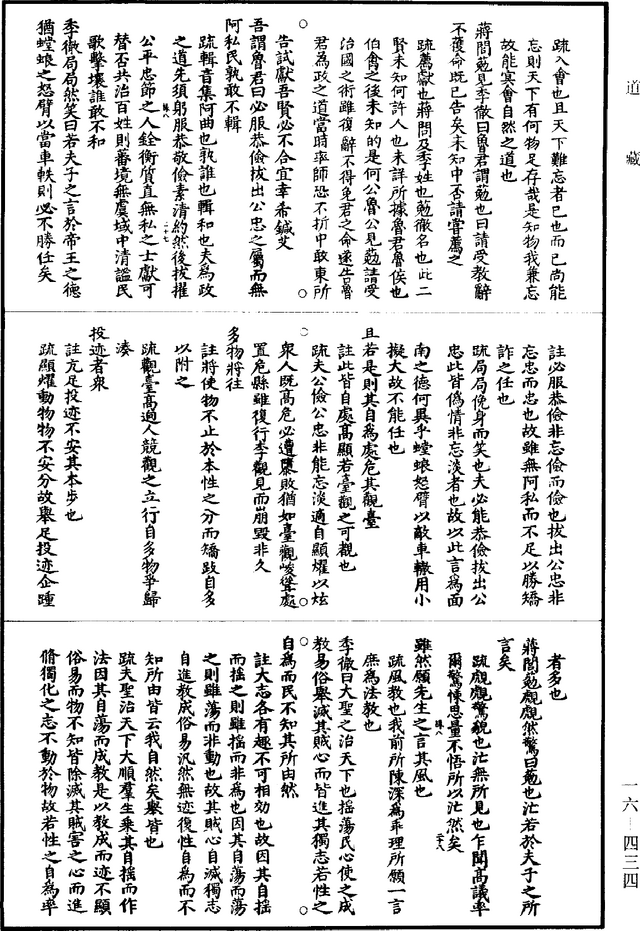 道藏
疏入會也且天下難忘者己也而已尚能
忘則天下有何物足存哉是知物我兼忘
故能冥會自然之道也
蔣閭葂見季徹曰魯君謂葂也曰請受教辭
不獲命既已告矣未知中否請嘗薦之
疏薦獻也蔣閭及季姓也葂徹名也此二
賢未知何許人也未詳所據魯君魯侯也
伯禽之後未知的是何公魯公見葂請受
治國之術雖復辭不得免君之命遂告魯
君為政之道當時率師恐不折中敢東所
告試獻吾賢必不合宜幸希鍼艾
吾謂魯君曰必服恭儉拔出公忠之屬而無
阿私民孰敢不輯
疏輯音集阿曲也孰誰也輯和也夫為政
之道先須躬服恭敬儉素清約然後拔擢
公平忠節之人銓衡質直無私之士獻可
替否共治百姓則蕃境無虞域中清謐民
歌擊壤誰敢不和
季徹局局然笑曰若夫子之言於帝王之德
猶螳蜋之怒臂以當車軼則必不勝任矣
註必服恭儉非忘儉而儉也拔出公忠非
忘忠而忠也故雖無阿私而不足以勝矯
詐之任也
疏局局俛身而笑也夫必能恭儉拔出公
忠此皆偽情非忘淡者也故以此言為面
南之德何異乎螳蜋怒臂以敵車轍用小
擬大故不能任也
且若是則其自為處危其觀臺
註此皆自處高顯若臺觀之可觀也
疏夫公儉公忠非能忘淡適自顯燿以炫
衆人既高危必遭隳敗猶如臺觀峻聳處
置危縣雖復行李觀見而崩毀非久
多物將往
註將使物不止於本性之分而矯跂自多
以附之
疏觀臺高逈人競觀之立行自多物爭歸
湊
投迹者衆
註亢足投迹不安其本步也
疏顯燿動物物不安分故舉足投迹企踵
者多也
蔣閭葂覤覤然驚曰葂也汒若於夫子之所
言矣
疏覤覤驚貌也汒無所見也乍聞高議率
爾驚悚思量不悟所以汒然矣
雖然願先生之言其風也
疏風教也我前所陳深為乖理所願一言
庶為法教也
季徹曰大聖之治天下也搖蕩民心使之成
教易俗舉滅其賊心而皆進其獨志若性之
自為而民不知其所由然
註大志各有趣不可相効也故因其自搖
而搖之則雖搖而非為也因其自蕩而蕩
之則雖蕩而非動也故其賊心自滅獨志
自進教成俗易汎然無迹復性自為而不
知所由皆云我自然矣舉皆也
疏夫聖治天下大順羣生乘其自搖而作
法因其自蕩而成教是以教成而迹不顯
俗易而物不知皆除滅其賊害之心而進
脩獨化之志不動於物故若性之自為率
一六—四三四